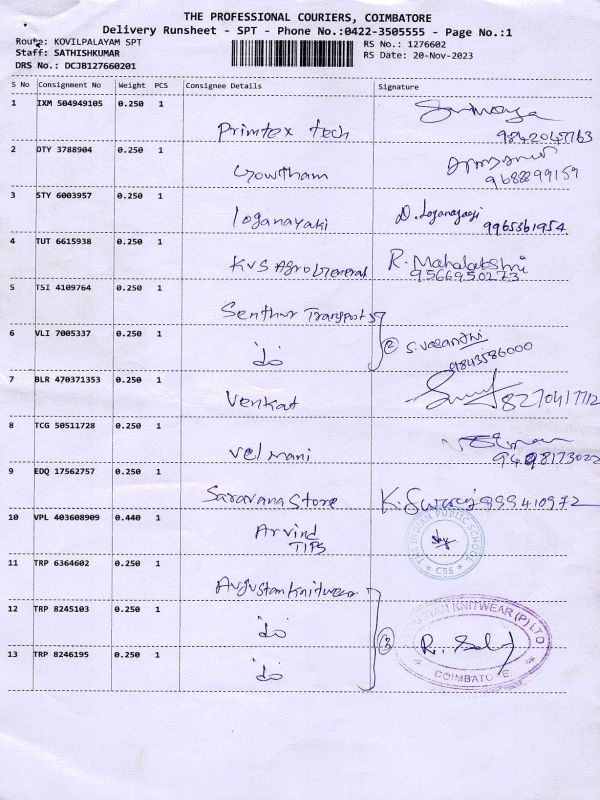 THE PROFESSIONAL COURIERS, COIMBATORE
Delivery Runsheet - SPT - Phone No.:0422-3505555 - Page No.:1
Route: KOVILPALAYAM SPT
Staff: SATHISHKUMAR
DRS No.: DCJB127660201
RS No.: 1276602
RS Date: 20-Nov-2023
S No Consignment No Weight PCS Consignee Details Signature
1 IXM 504949105 0.250 1 Primtex tech
2 OTY 3788904 0.250 1 Gowtham 9688899159
3 STY 6003957 0.250 1 loganayaki D. Loganayagi 9965361954
4 TUT 6615938 0.250 1 KVS Agro General R. Mahalakshmi 9566950273
5 TSI 4109764 0.250 1 Senthur Transports
6 VLI 7005337 0.250 1 do 2 S. Vasanthi 9843586000
7 BLR 470371353 0.250 1 Venkat 8270417712
8 TCG 50511728 0.250 1 Velmani
9 EDQ 17562757 0.250 1 Saravana Store
10 VPL 403608909 0.440 1 Arvind
TIPS
THE INDIAN PUBLIC SCHOOL
CBE
11 TRP 6364602 0.250 1 Augustan Knitwear
12 TRP 8245103 0.250 1 do
13 TRP 8246195 0.250 1 do
3
KNITWEAR (P) LTD
COIMBATO E